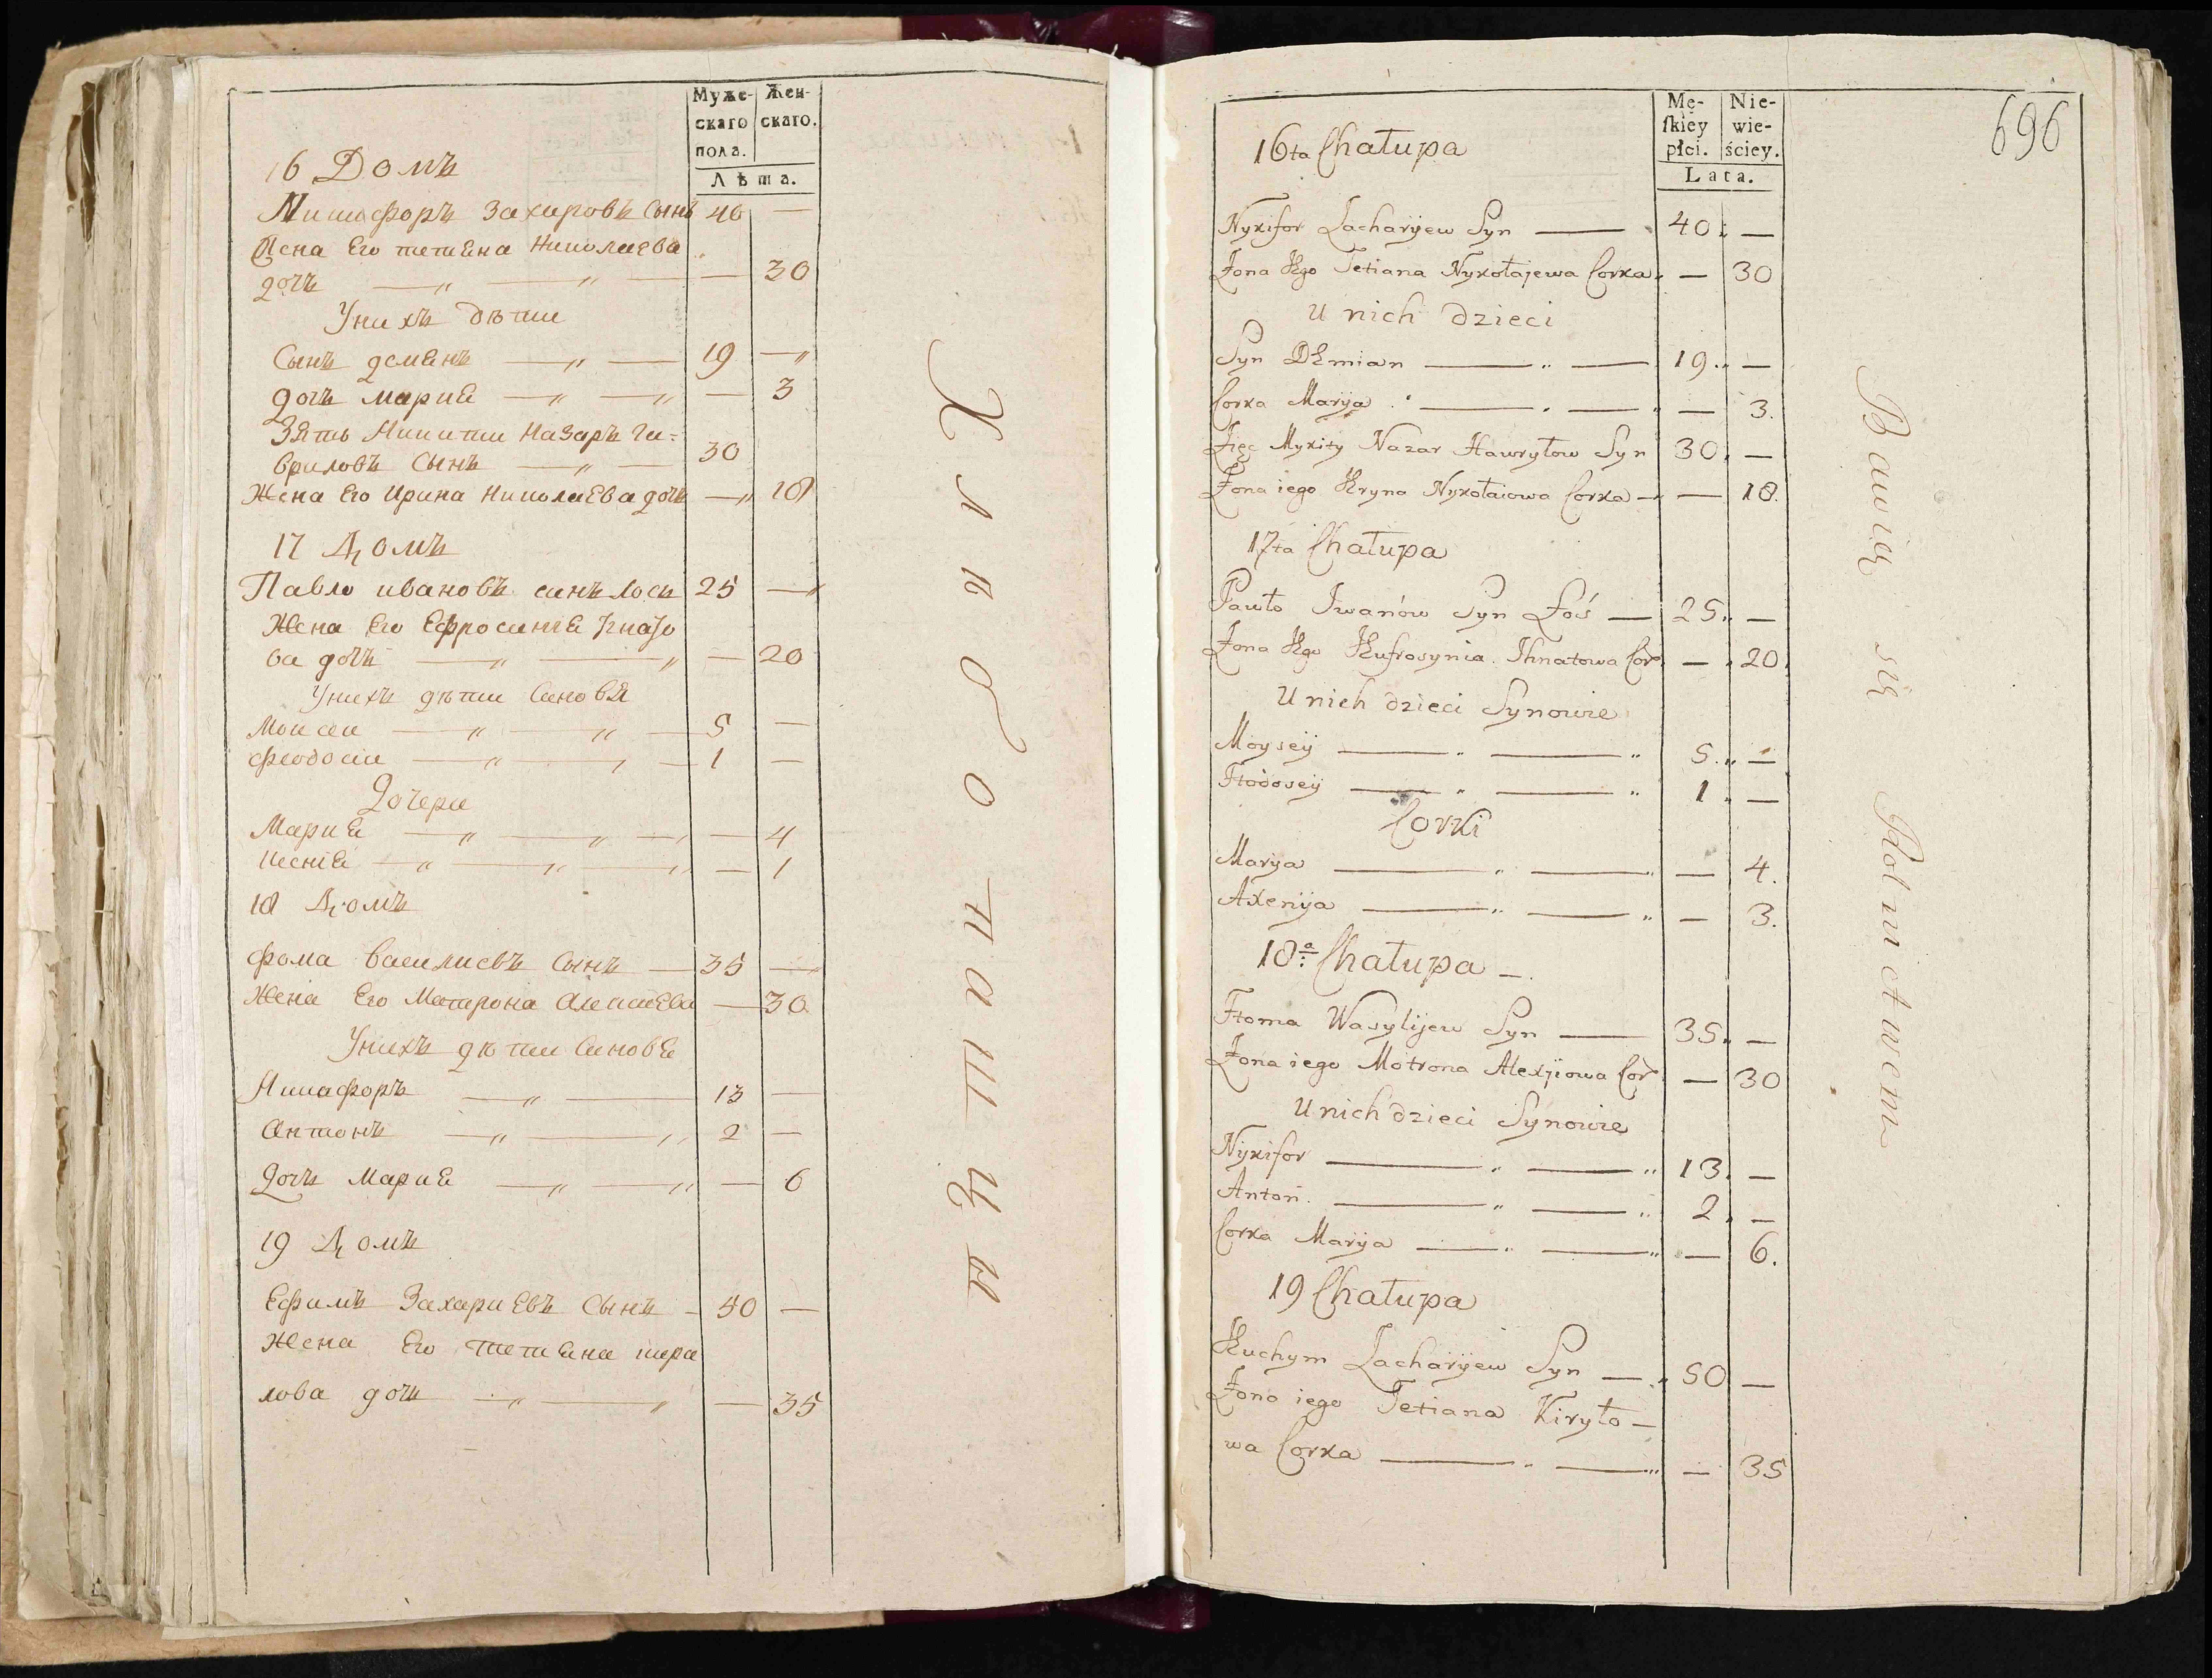 Муже-
скаго
пола.
Жен-
скаго.
Лѣта.
16 Домъ
Никифоръ Захаровъ Сынъ 40 —
Жена Его татиана Николаева
дочь — „ — „ — — 30
Унихъ дѣти
Сынъ демянъ — „ — 19 — „
дочь мария — „ — „ — 3
Зять Никити Назаръ Га=
вриловъ Сынъ — „ — 30
Жена Его Ирина Николаева дочь — „ 18
17 Домъ
Павло ивановъ синъ лось 25 — „
Жена Его Ефросиния Игнато
ва дочь — „ — „ — 20
Унихъ дѣти Синовя
Моисеи — „ — „ — 5 —
феодоси — „ — „ — 1 —
Дочери
Мария — „ — „ — „ — 4
Ксения — „ — „ — „ — 1
18 Домъ
фома Василиевъ Сынъ — 35 —
Жена Его Матрона Алексиева — 30
Унихъ дѣти Синовя
Никифоръ — „ — 13 —
Антонъ — „ — „ 2 —
Дочь Мария — „ — „ — 6
19 Домъ
Ефимъ Захариевъ Сынъ — 50 —
Жена Его татиана кира
лова дочь — „ — „ — 35
Хлѣбопашцы
Mę-
ſkiey
płci.
Nie-
wie-
ściey.
Lata.
696
16ta Chałupa
Nykifor Zacharyiew Syn — 40 „ —
Zona Jego Tetiana Nykołajewa Corka „ — 30
U nich dzieci
Syn Demian — „ — 19 „ —
Corka Maryia — „ — „ — 3.
Zięc Mykity Nazar Hawryłow Syn 30 „ —
Zona iego Jryna Nykołaiowa Corka — „ — 18.
17ta Chałupa
Pawło Iwanów Syn Łoś — 25 „ —
Zona Jego Jeufrosynia Ihnatowa Cor. — „ 20.
U nich dzieci Synowie
Moyseij — „ — „ 5 „ —
Ftodoseij — „ — „ 1 „ —
Corki
Marya — „ — „ — 4.
Axeniya — „ — „ — 3.
18a Chałupa —.
Ftoma Wasylijew Syn — 35 „ —
Zona iego Motrona Alexjiowa Cor. — 30
U nich dzieci Synowie
Nykifor — „ — „ 13 „ —
Anton. — „ — „ 2 „ —
Corka Maryia — „ — „ — 6.
19 Chałupa
Jeuchym Zacharyiew Syn — „ 50 —
Zona iego Tetiana Kiryło—
wa Corka — „ — „ — 35
Bawią się Rolnictwem